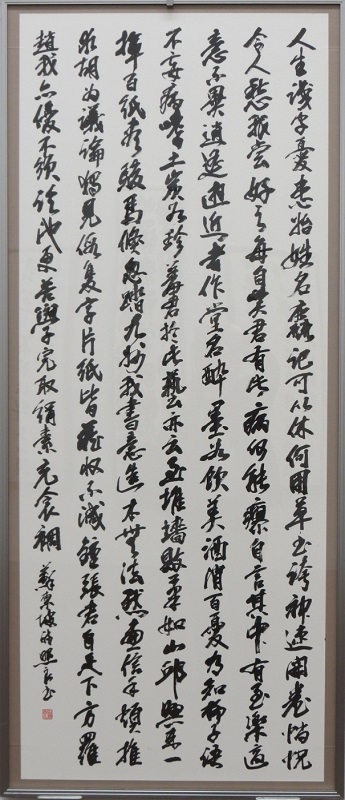 人生識字憂患始姓名麤記可以休何用草書誇神速開卷惝怳
令人愁我嘗好之每自笑君有此病何能瘳自言其中有至樂適
意不異逍遙遊近者作堂名醉墨如飲美酒消百憂乃知柳子語
不妄病嗜土炭如珍羞君於此藝亦云至堆牆敗筆如山邱興來一
揮百紙盡駿馬倏忽踏九州我書意造本無法點畫信手煩推
求胡為議論獨見假隻字片紙皆藏收不減鍾張君自足下方羅
趙我亦優不須臨池更苦學完取絹素充衾裯 蘇東坡詩 書